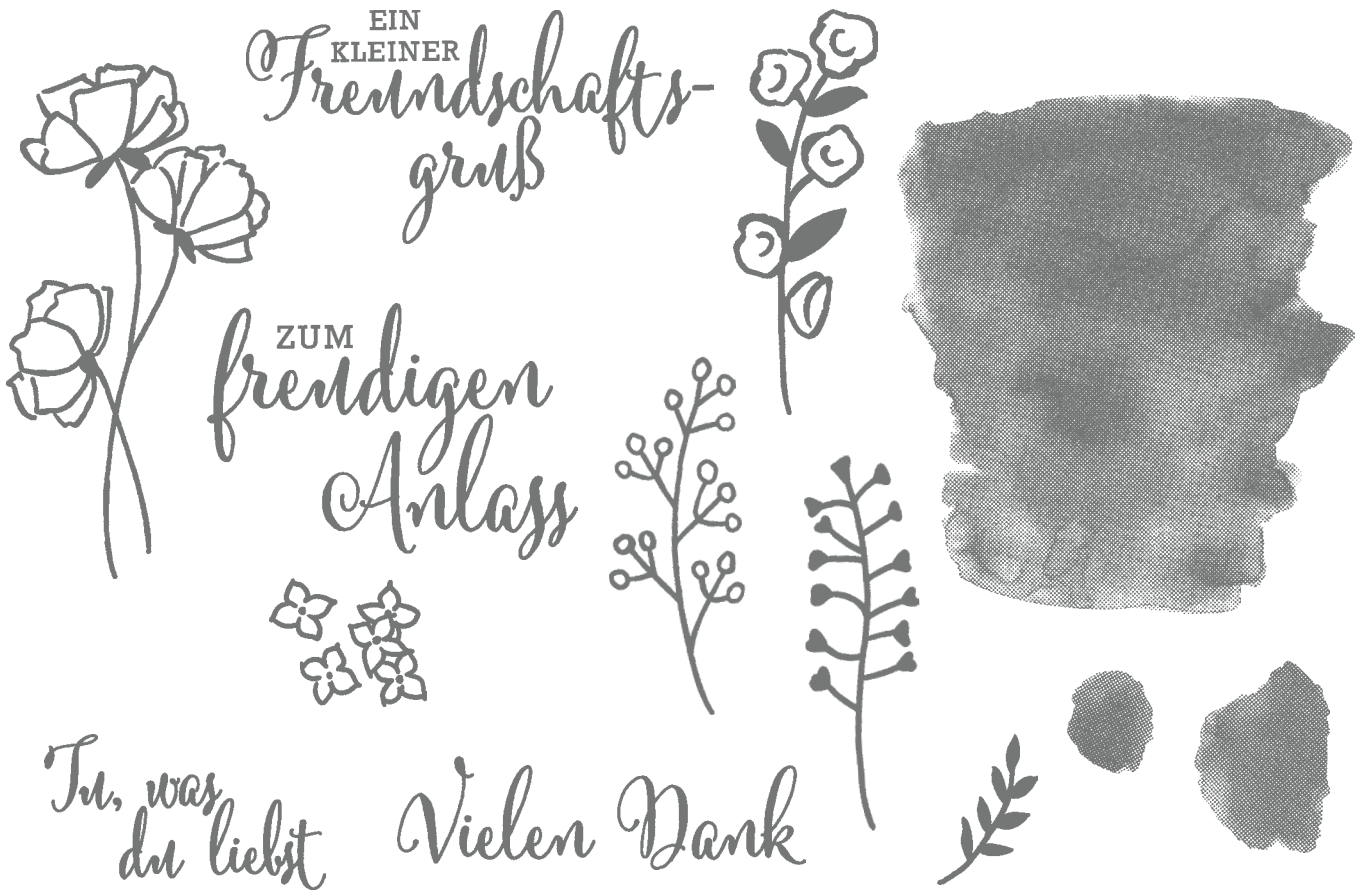 EIN
KLEINER
Freundschafts-
gruß
ZUM
freudigen
Anlass
Tu, was
du liebst
Vielen Dank